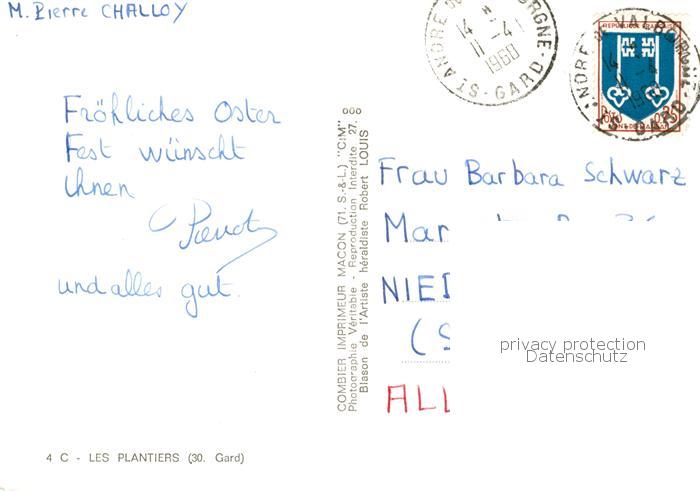 M. Pierre CHALLOY
Fröhliches Oster
Fest wünscht
Ihnen
Pierrot
und alles gut.
4 C - LES PLANTIERS (30. Gard)
COMBIER IMPRIMEUR MACON (71. S.-&-L.) "CIM"
Photographie Véritable - Reproduction Interdite 27.
Blason de l'Artiste héraldiste Robert LOUIS
ST ANDRE DE VALBORGNE
14
11 - 4
1968
GARD
REPUBLIQUE FRANÇAISE
0,25
Frau Barbara Schwarz
Mar
NIED
(S
ALL
privacy protection
Datenschutz